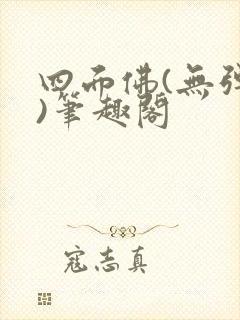 四而佛(無彈
)筆趣閣
寇志真